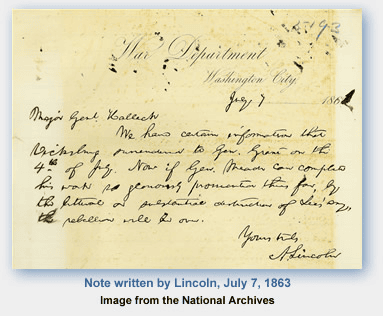 2493
War Department
Washington City,
July 7 186
Major Genl. Halleck
We have certain information that
Vicksburg surrendered to Gen. Grant on the
4th of July. Now if Gen. Meade can complete
his work so gloriously prosecuted thus far, by
the literal or substantial destruction of Lee's army,
the rebellion will be over.
Yours truly
A. Lincoln
Note written by Lincoln, July 7, 1863
Image from the National Archives